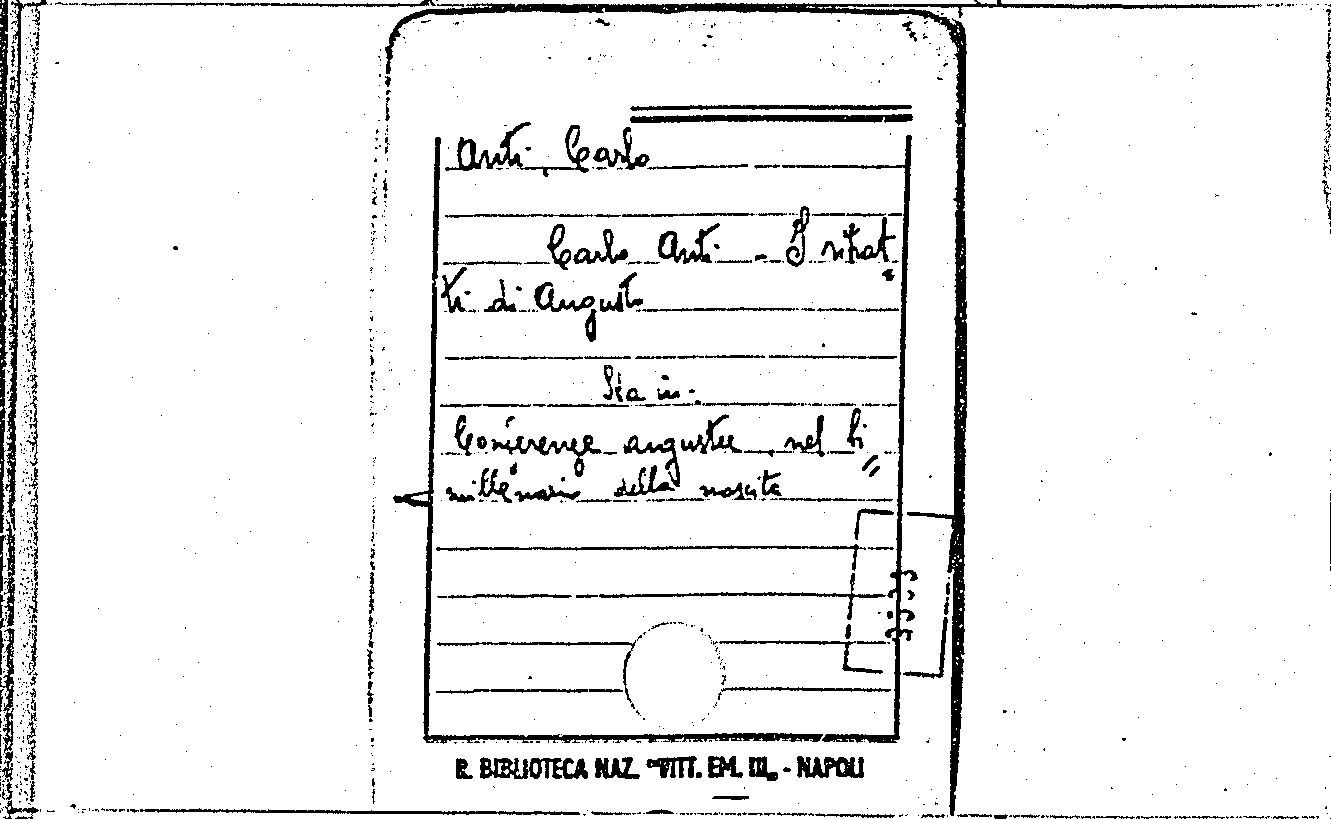 Anti, Carlo
Carlo Anti - I ritrat
ti di Augusto
Sta in:
Conferenze augustee, nel bi
millenario della nascita
R. BIBLIOTECA NAZ. "VITT. EM. III" - NAPOLI